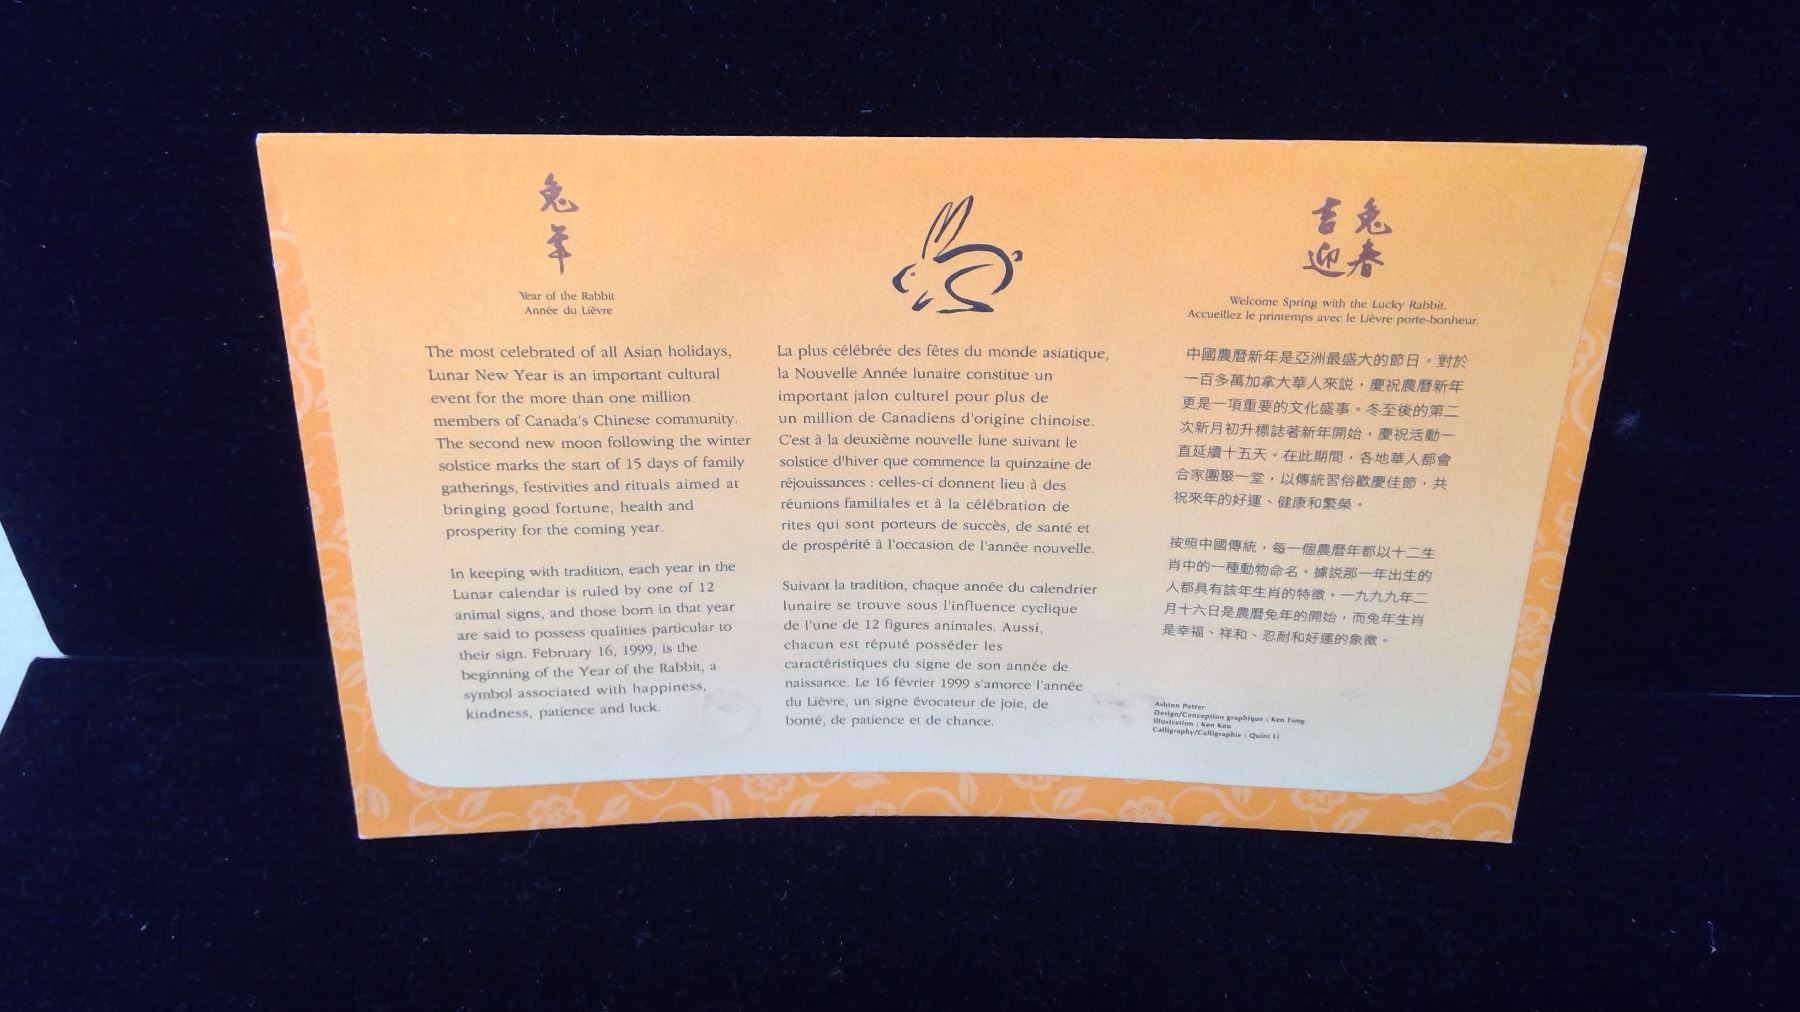 兔
年
Year of the Rabbit
Année du Lièvre
The most celebrated of all Asian holidays,
Lunar New Year is an important cultural
event for the more than one million
members of Canada's Chinese community.
The second new moon following the winter
solstice marks the start of 15 days of family
gatherings, festivities and rituals aimed at
bringing good fortune, health and
prosperity for the coming year.
In keeping with tradition, each year in the
Lunar calendar is ruled by one of 12
animal signs, and those born in that year
are said to possess qualities particular to
their sign. February 16, 1999, is the
beginning of the Year of the Rabbit, a
symbol associated with happiness,
kindness, patience and luck.
La plus célébrée des fêtes du monde asiatique,
la Nouvelle Année lunaire constitue un
important jalon culturel pour plus de
un million de Canadiens d'origine chinoise.
C'est à la deuxième nouvelle lune suivant le
solstice d'hiver que commence la quinzaine de
réjouissances : celles-ci donnent lieu à des
réunions familiales et à la célébration de
rites qui sont porteurs de succès, de santé et
de prospérité à l'occasion de l'année nouvelle.
Suivant la tradition, chaque année du calendrier
lunaire se trouve sous l'influence cyclique
de l'une de 12 figures animales. Aussi,
chacun est réputé posséder les
caractéristiques du signe de son année de
naissance. Le 16 février 1999 s'amorce l'année
du Lièvre, un signe évocateur de joie, de
bonté, de patience et de chance.
吉兔
迎春
Welcome Spring with the Lucky Rabbit.
Accueillez le printemps avec le Lièvre porte-bonheur.
中國農曆新年是亞洲最盛大的節日。對於
一百多萬加拿大華人來説，慶祝農曆新年
更是一項重要的文化盛事。冬至後的第二
次新月初升標誌著新年開始，慶祝活動一
直延續十五天。在此期間，各地華人都會
合家團聚一堂，以傳統習俗歡慶佳節，共
祝來年的好運、健康和繁榮。
按照中國傳統，每一個農曆年都以十二生
肖中的一種動物命名。據説那一年出生的
人都具有該年生肖的特徵。一九九九年二
月十六日是農曆兔年的開始，而兔年生肖
是幸福、祥和、忍耐和好運的象徵。
Ashton Potter
Design/Conception graphique : Ken Fung
Illustration : Ken Koo
Calligraphy/Calligraphie : Quint Li